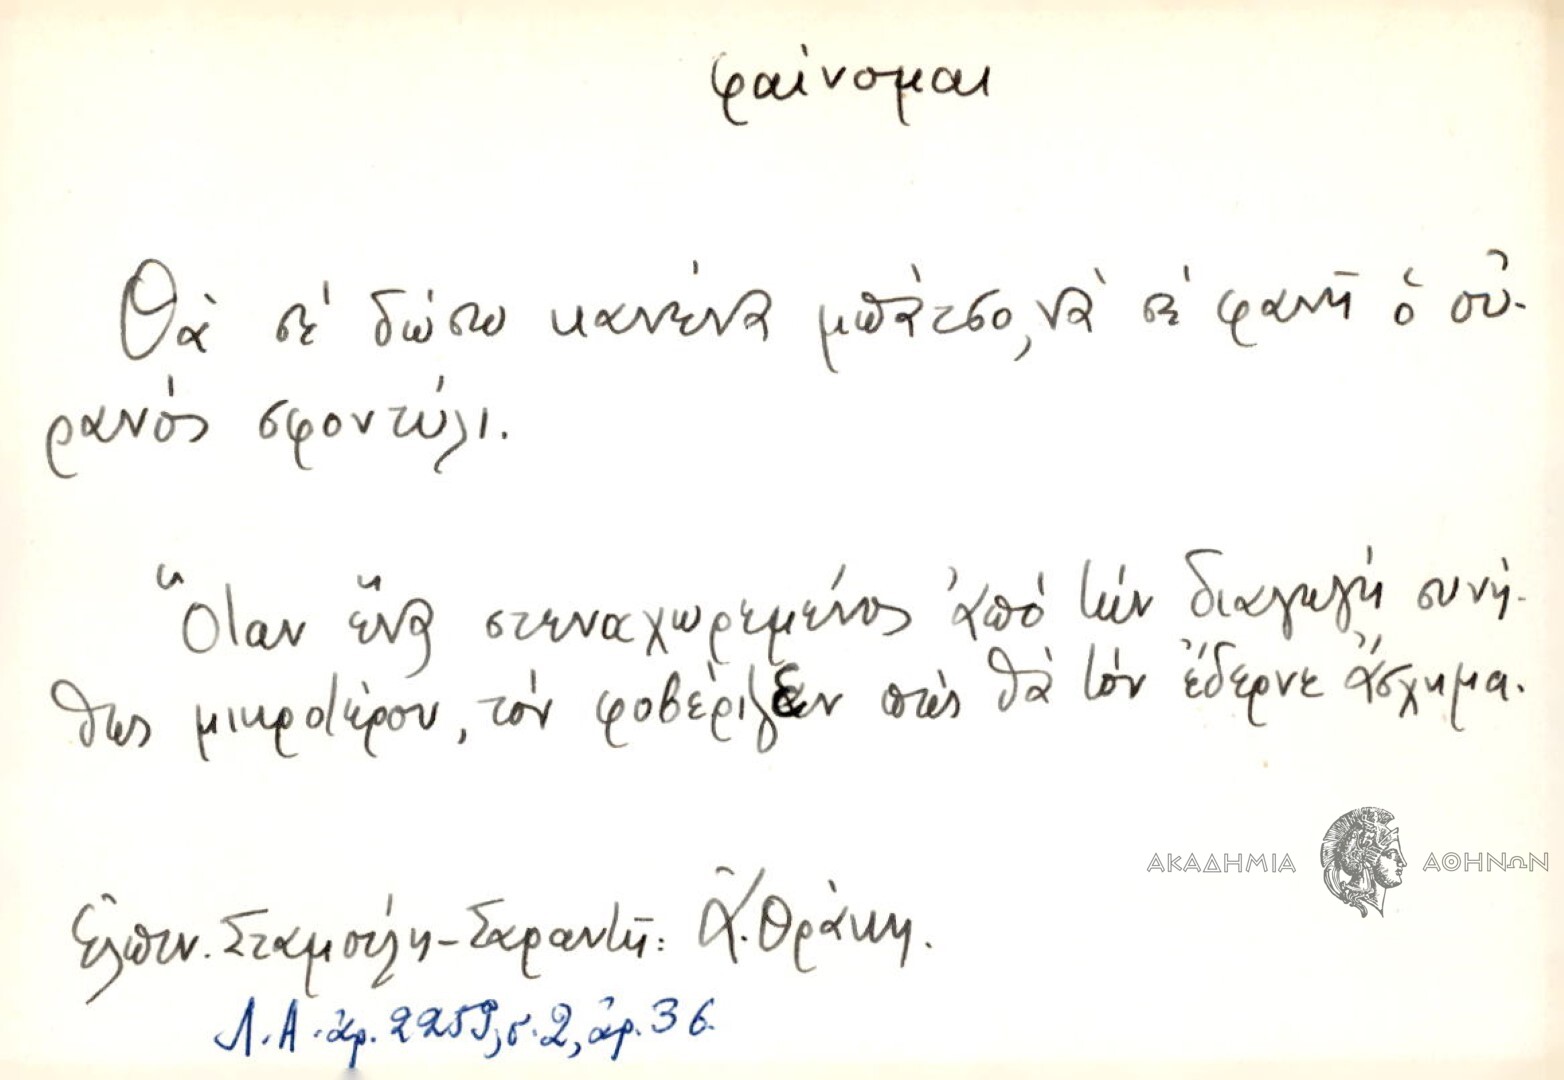 φαίνομαι
Θὰ σέ δώσω κανένα μπάτσο, νὰ σέ φανῆ ὁ οὐ-
ρανός σφοντύλι.
Ὅταν ἕνας στεναχωρεμένος ἀπό τήν διαγωγή συνή-
θως μικροτέρου, τόν φοβέριζεν πώς θὰ τόν ἔδερνε ἄσχημα.
Ἐλπιν. Σταμούλη-Σαραντῆ: Ἀ. Θράκη.
Λ.Α. ἀρ. 2259, σ. 2, ἀρ. 36.
ΑΚΑΔΗΜΙΑ ΑΘΗΝΩΝ